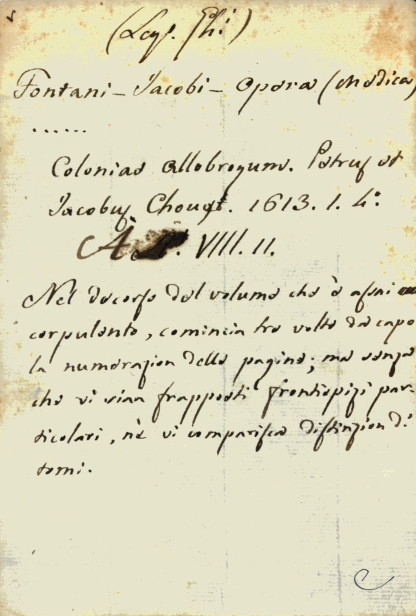 (Leg. Phi)
Fontani - Jacobi - Opera (Medica)
......
Coloniae Allobrogum. Petrus et
Jacobus Chouet. 1613. 1. 4.°
A. VIIII. 11.
Nel decorso del volume che è assai
corpulento, comincia tre volte da capo
la numerazion delle pagine; ma senza
che vi sian frapposti frontispizi par-
ticolari, nè vi comparisca distinzion di
tomi.